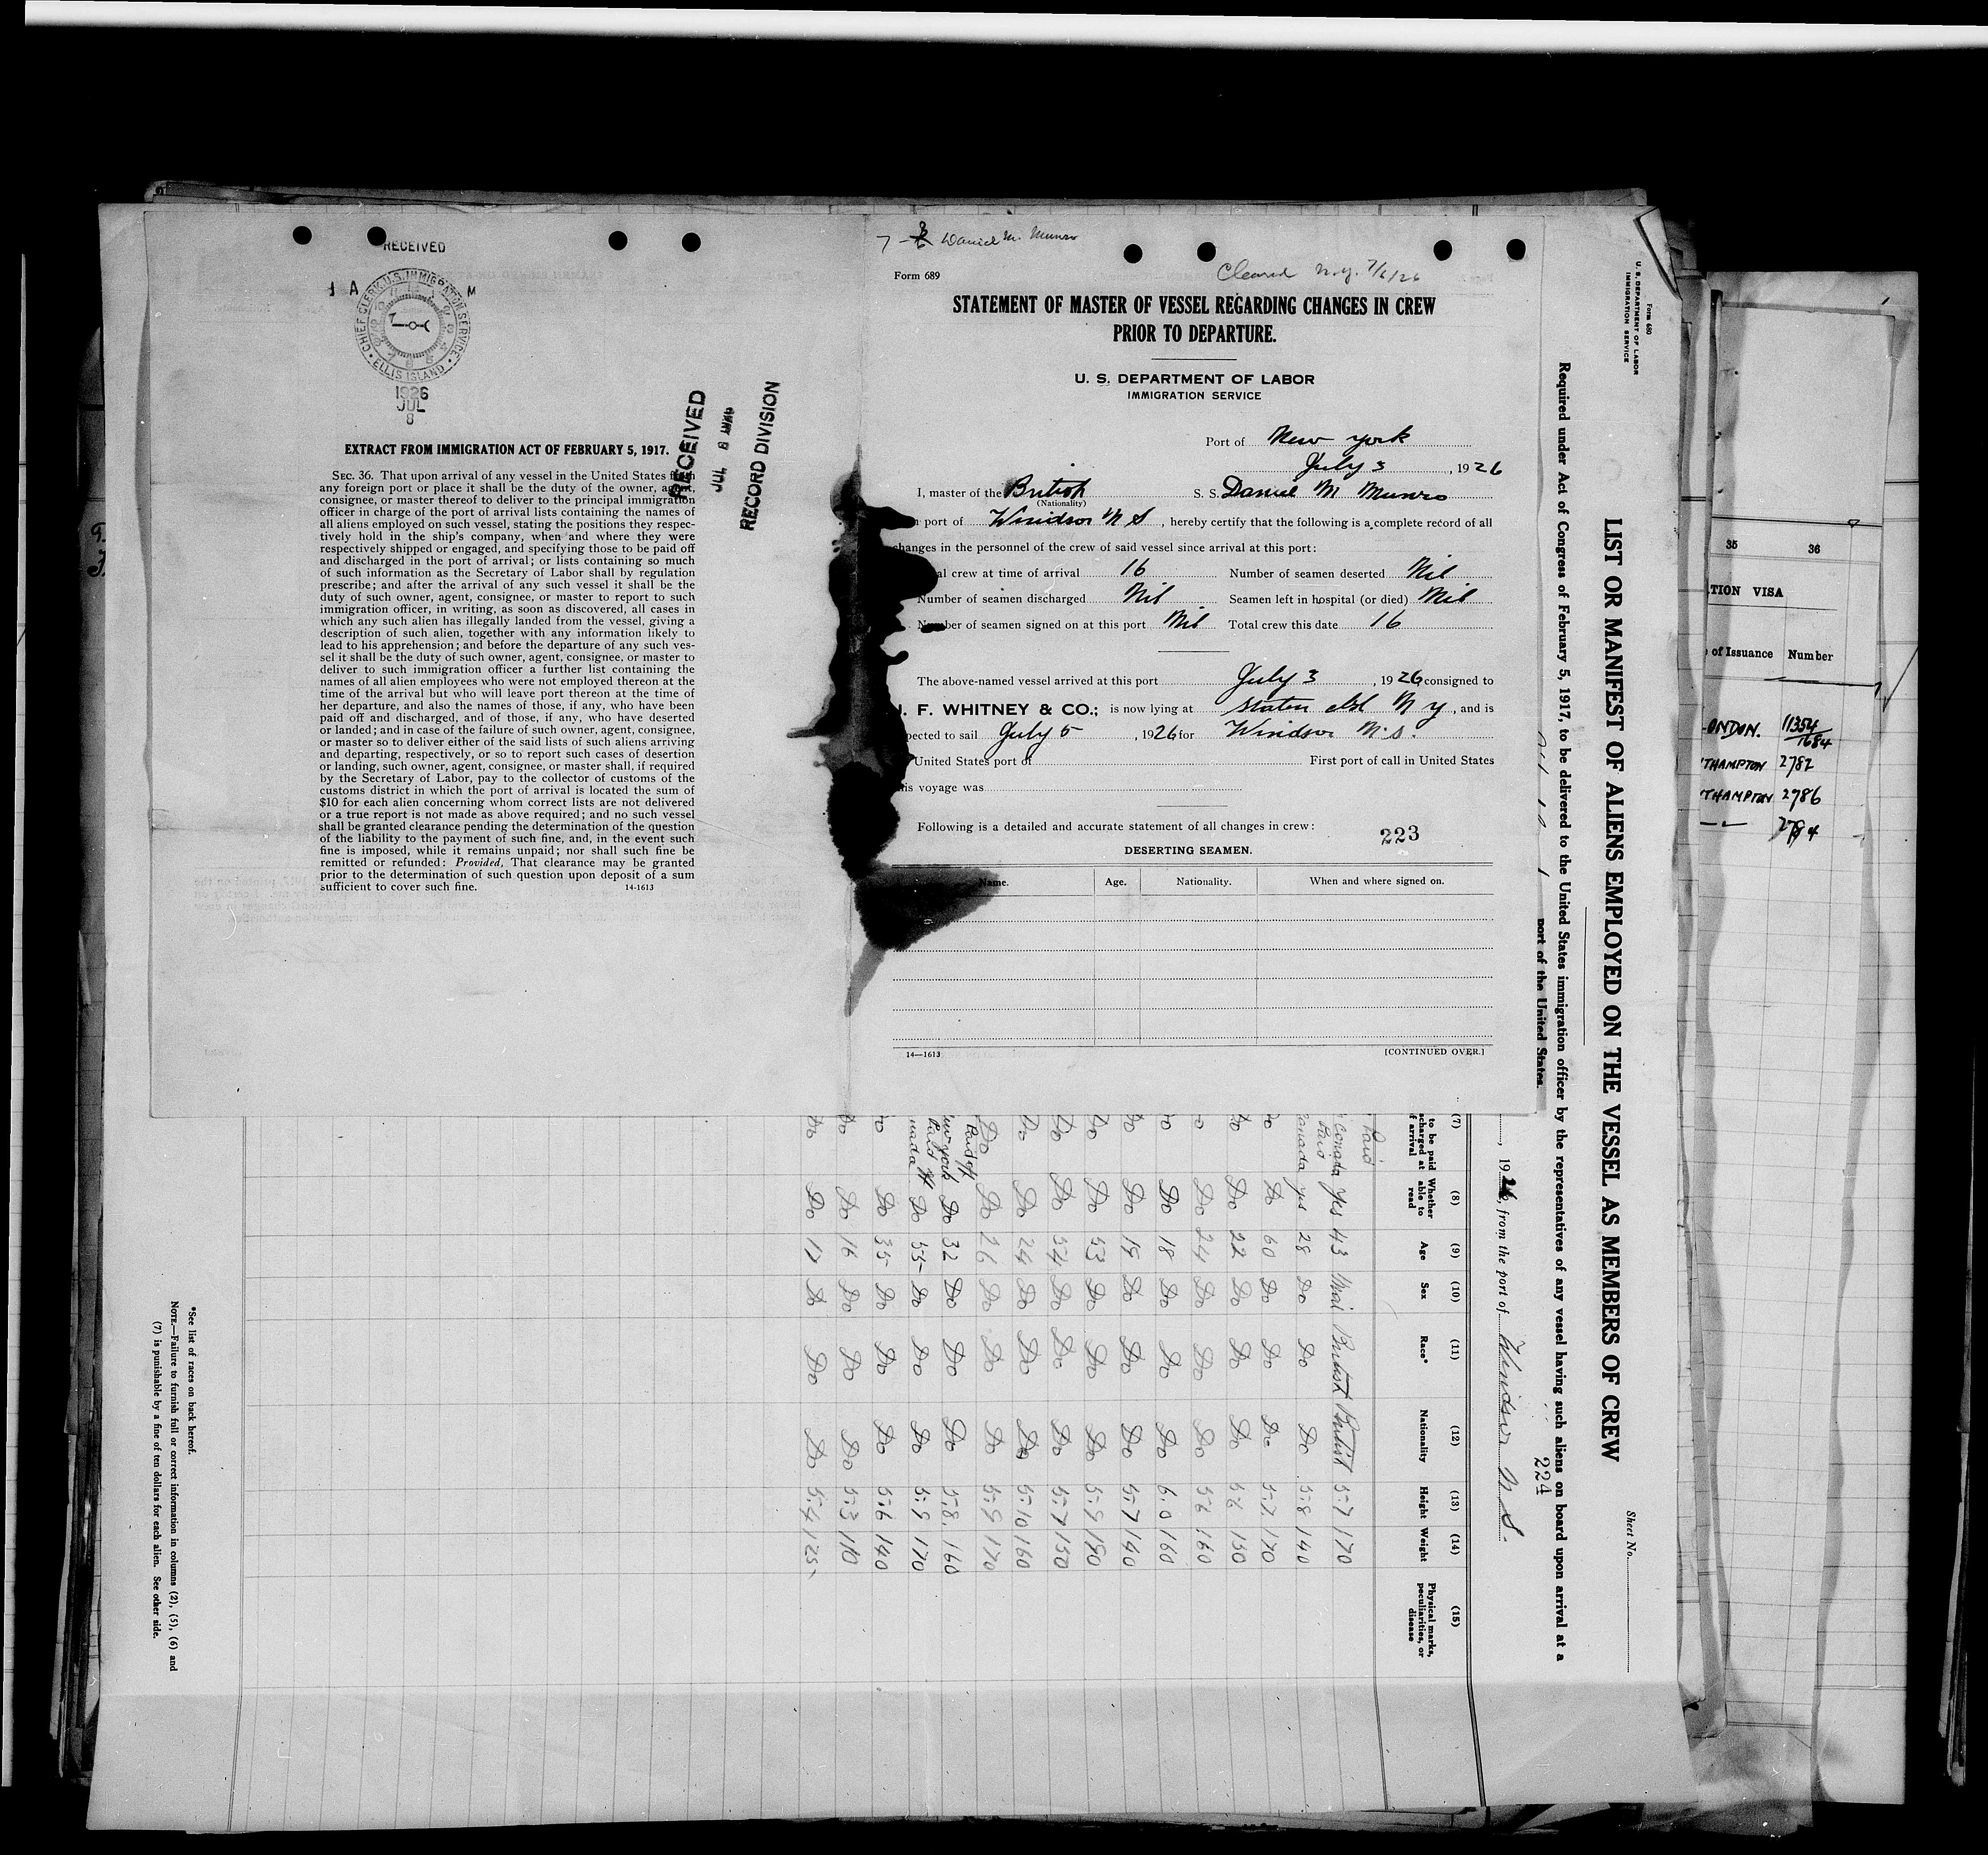 RECEIVED
CHIEF CLERK U.S. IMMIGRATION SERVICE
ELLIS ISLAND
A M
1926
JUL
8
RECEIVED
JUL 8 1926
RECORD DIVISION
EXTRACT FROM IMMIGRATION ACT OF FEBRUARY 5, 1917.
SEC. 36. That upon arrival of any vessel in the United States from
any foreign port or place it shall be the duty of the owner, agent,
consignee, or master thereof to deliver to the principal immigration
officer in charge of the port of arrival lists containing the names of
all aliens employed on such vessel, stating the positions they respec-
tively hold in the ship's company, when and where they were
respectively shipped or engaged, and specifying those to be paid off
and discharged in the port of arrival; or lists containing so much
of such information as the Secretary of Labor shall by regulation
prescribe; and after the arrival of any such vessel it shall be the
duty of such owner, agent, consignee, or master to report to such
immigration officer, in writing, as soon as discovered, all cases in
which any such alien has illegally landed from the vessel, giving a
description of such alien, together with any information likely to
lead to his apprehension; and before the departure of any such ves-
sel it shall be the duty of such owner, agent, consignee, or master to
deliver to such immigration officer a further list containing the
names of all alien employees who were not employed thereon at the
time of the arrival but who will leave port thereon at the time of
her departure, and also the names of those, if any, who have been
paid off and discharged, and of those, if any, who have deserted
or landed; and in case of the failure of such owner, agent, consignee,
or master so to deliver either of the said lists of such aliens arriving
and departing, respectively, or so to report such cases of desertion
or landing, such owner, agent, consignee, or master shall, if required
by the Secretary of Labor, pay to the collector of customs of the
customs district in which the port of arrival is located the sum of
$10 for each alien concerning whom correct lists are not delivered
or a true report is not made as above required; and no such vessel
shall be granted clearance pending the determination of the question
of the liability to the payment of such fine, and, in the event such
fine is imposed, while it remains unpaid; nor shall such fine be
remitted or refunded: Provided, That clearance may be granted
prior to the determination of such question upon deposit of a sum
sufficient to cover such fine. 14-1613
Daniel M. Munro
Form 689
Cleared N.Y. 7/6/26
STATEMENT OF MASTER OF VESSEL REGARDING CHANGES IN CREW
PRIOR TO DEPARTURE.
U. S. DEPARTMENT OF LABOR
IMMIGRATION SERVICE
Port of New York
July 3, 1926
I, master of the British S. S. Daniel M Munro
(Nationality)
port of Windsor N S, hereby certify that the following is a complete record of all
changes in the personnel of the crew of said vessel since arrival at this port:
crew at time of arrival 16 Number of seamen deserted Nil
Number of seamen discharged Nil Seamen left in hospital (or died) Nil
Number of seamen signed on at this port Nil Total crew this date 16
The above-named vessel arrived at this port July 3, 1926 consigned to
F. WHITNEY & CO.; is now lying at Staten Isl N Y, and is
expected to sail July 5, 1926 for Windsor N.S.
United States port of First port of call in United States
this voyage was
Following is a detailed and accurate statement of all changes in crew:
223
DESERTING SEAMEN.
Name. Age. Nationality. When and where signed on.
14—1613 [CONTINUED OVER.]
Form 680
U. S. DEPARTMENT OF LABOR
IMMIGRATION SERVICE
Sheet No.
LIST OR MANIFEST OF ALIENS EMPLOYED ON THE VESSEL AS MEMBERS OF CREW
Required under Act of Congress of February 5, 1917, to be delivered to the United States immigration officer by the representatives of any vessel having such aliens on board upon arrival at a
port of the United States.
224
, 1926, from the port of Windsor N S.
(7) (8) (9) (10) (11) (12) (13) (14) (15)
to be paid
discharged at
of arrival
Whether
able to
read
Age
Sex
Race*
Nationality
Height
Weight
Physical marks,
peculiarities, or
disease
Canada yes 43 British British 5-7 170
Canada yes 28 Do Do Do 5-8 140
Do Do 60 Do Do Do 5-7 170
Do Do 22 Do Do Do 5-8 150
Do Do 24 Do Do Do 5-6 160
Do Do 18 Do Do Do 6.0 160
Do Do 18 Do Do Do 5-7 140
Do Do 53 Do Do Do 5-9 180
Do Do 54 Do Do Do 5-7 150
Do Do 24 Do Do Do 5-10 160
Do Do 26 Do Do Do 5-9 170
Paid off
New York Do 32 Do Do Do 5-8 160
Paid off
Canada Do 55 Do Do Do 5-9 170
Do Do 35 Do Do Do 5-6 140
Do Do 16 Do Do Do 5-3 110
Do Do 17 Do Do Do 5-4 125
*See list of races on back hereof.
NOTE.—Failure to furnish full or correct information in columns (2), (5), (6) and
(7) is punishable by a fine of ten dollars for each alien. See other side.
35 36
TION VISA
of Issuance Number
ONDON. 11354/1684
THAMPTON 2782
THAMPTON 2786
2784